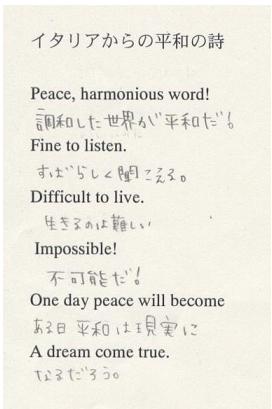 イタリアからの平和の詩
Peace, harmonious word!
調和した世界が平和だ!
Fine to listen.
すばらしく聞こえる。
Difficult to live.
生きるのは難しい
Impossible!
不可能だ!
One day peace will become
ある日平和は現実に
A dream come true.
なるだろう。